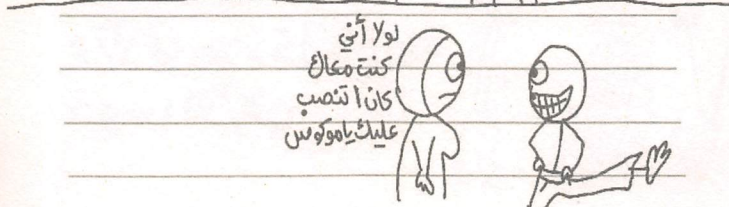 لولا أني
كنت معاك
كان اتنصب
عليك يا موكوس